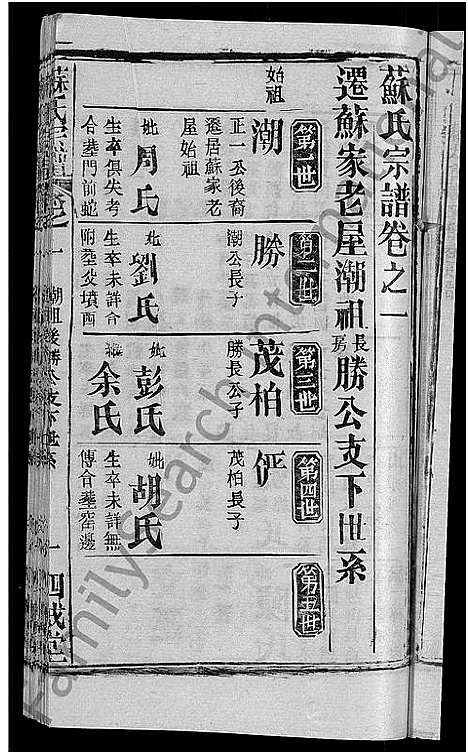 蘇氏宗譜卷之一
遷蘇家老屋潮祖長房勝公支下世系
第一世
始祖
潮
正一公後裔
遷居蘇家老
屋始祖
妣周氏
生卒俱失考
合葬門前蛇
第二世
勝
潮公長子
妣劉氏
生卒未詳合
附葬父墳西
第三世
茂柏
勝公長子
妣彭氏
余氏
第四世
伊
茂柏長子
妣胡氏
生卒未詳無
傳合葬窑邊
第五世
蘇氏宗譜 卷之一
潮祖長勝公支下世系
一
四戒堂
Familysearch International